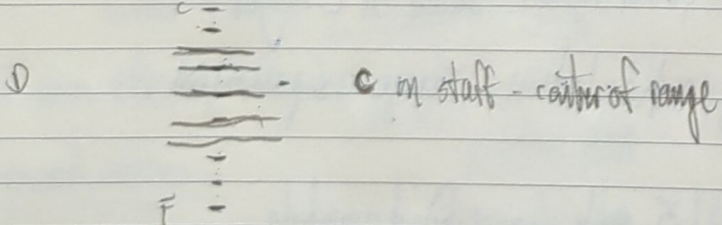 C
D C in staff - center of range
F